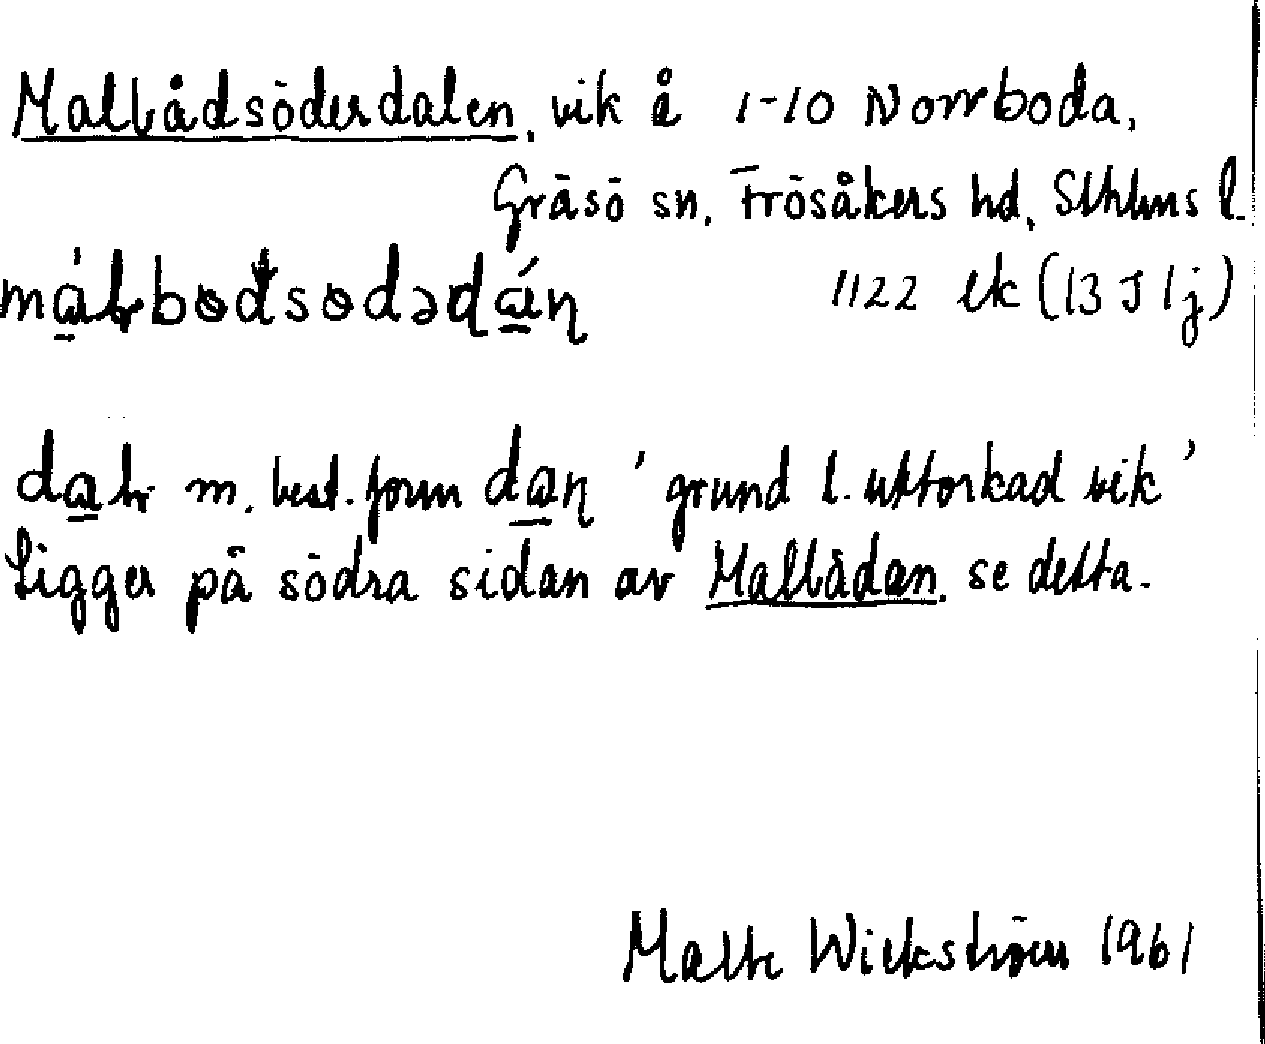 Malbådsöderdalen, vik å 1-10 Norrboda,
Gräsö sn, Frösåkers hd, Sthlms l.
1122 ek (13 J 1j)
m. best. form dan 'grund l. uttorkad vik'
Ligger på södra sidan av Malbådan, se detta.
Malte Wickström 1961